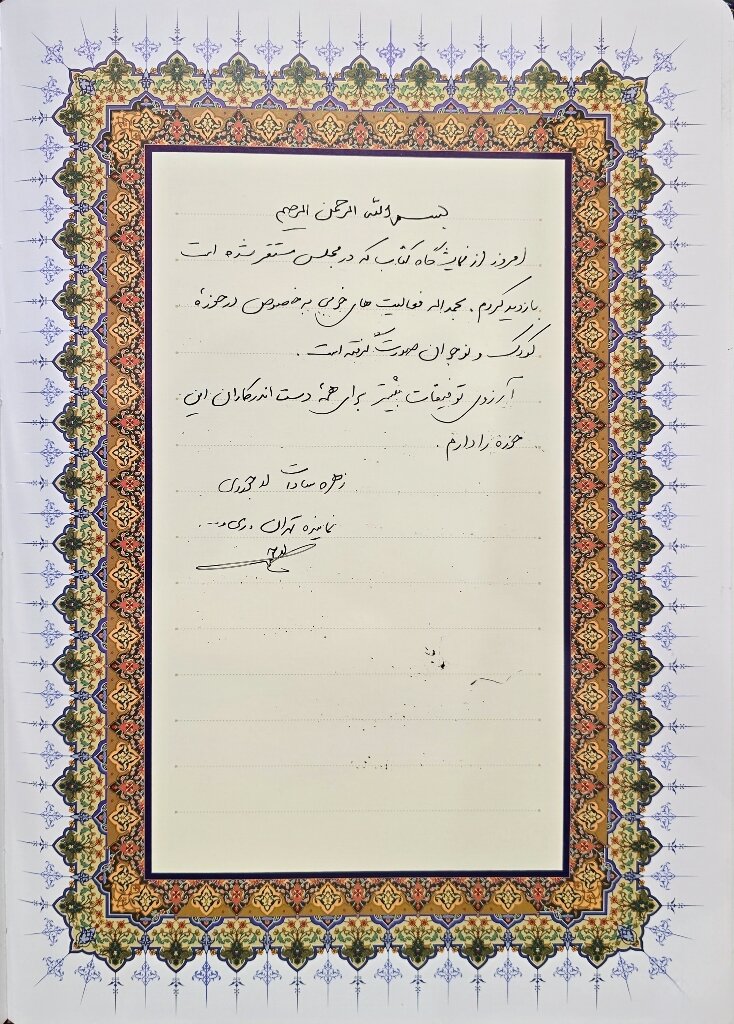 بسم الله الرحمن الرحیم
امروز از نمایشگاه کتاب که در مجلس مستقر شده است
بازدید کردم. بحمداله فعالیت های خوبی به خصوص در حوزهٔ
کودک و نوجوان صورت گرفته است.
آرزوی توفیقات بیشتر برای همهٔ دست اندرکاران این
حوزه را دارم.
زهره سادات لاجوردی
نماینده تهران، ری و ...